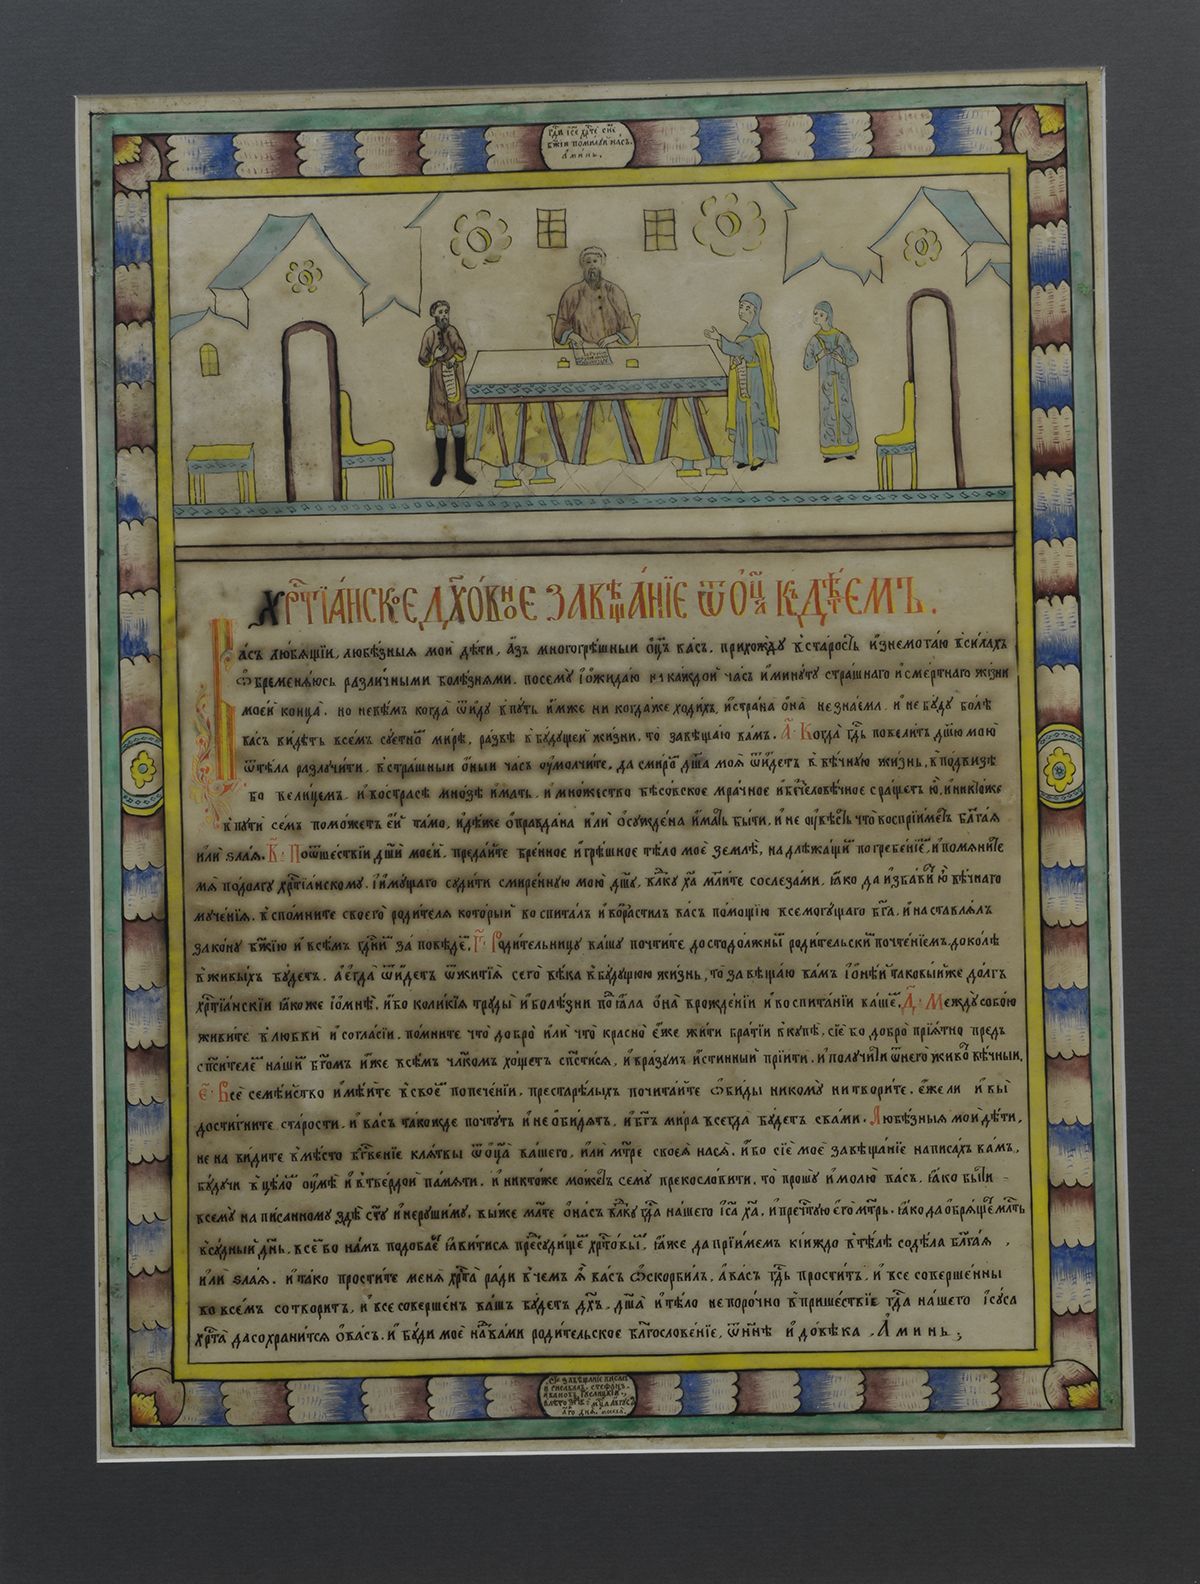 гдⷭ҇и іс҃е хрⷭ҇те сн҃е
бж҃їи помилуй насъ.
аминь.
хрⷭ҇тїа́нское дх҃о́вное завѣща́нїе ѿ о҆ц҃а̀ къ дѣ́темъ.
Ва́съ любѧ́щїи, любе́зныѧ мои̑ дѣ́ти, а҆́зъ многогрѣ́шныи ѻ҆ц҃ъ ва́съ, прихожду̀ въ ста́рость и҆знемога́ю въ си́лахъ
ѡ҆бременѧ́юсь разли́чными болѣ́знѧми. посему̀ і҆ ѡ҆жида́ю на ка́ждой ча́съ и҆ мину́ту стра́шнаго и҆ сме́ртнаго жи́зни
мое́й конца̀. но не вѣ́мъ когда̀ ѿи́ду въ пу́ть и҆́мже никогда́же ходи́хъ, и҆ страна̀ ѻ҆на̀ незна́ема, и҆ не бу́ду бо́лѣ
ва́съ ви́дѣть в семъ су́етномъ ми́рѣ, ра́звѣ въ бу́дущей жи́зни, то̀ завѣща́ю ва́мъ. а҃. Когда̀ гдⷭ҇ь повели́тъ дш҃у мою̀
ѿ тѣ́ла разлучи́ти, въ стра́шныи ѻ҆́ныи ча́съ ѹ҆молчи́те, да смире́ннаѧ дш҃а моѧ̀ ѿи́детъ въ вѣ́чную жи́знь, въ по́двизѣ
бо вели́цемъ, и҆ во стра́сѣ мно́зѣ и҆́мать, и҆ мно́жество бѣсо́вское мра́чное и҆ безчеловѣ́чное срѧ́щетъ ю҆̀, и҆ никто́же
в пути̑ се́мъ помо́жетъ е҆́й та́мо, и҆дѣ́же ѻ҆правда́на и҆ли̑ ѻ҆сужде́на и҆́мать бы́ти, и҆ не ѹ҆вѣ́сть что̀ воспрїи́метъ бл҃га́ѧ
и҆ли̑ ѕла́ѧ. в҃. По ѿше́ствїи дш҃и̑ мое́й, преда́йте бре́нное и҆ грѣ́шное тѣ́ло моѐ землѣ̀, надлежа́щимъ погребе́нїемъ, и҆ помѧни́те
мѧ̀ по до́лгу хрⷭ҇тїа́нскому, і҆ и҆му́щаго суди́ти смире́нную мою̀ дш҃у, влⷣку хр҃та̀ моли́те со слеза́ми, ꙗ҆́ко да и҆зба́витъ ю҆̀ вѣ́чнаго
муче́нїѧ, вспомни́те своего̀ роди́телѧ кото́рый воспита́лъ и҆ возрасти́лъ ва́съ по́мощїю всемогу́щаго бг҃а, и҆ наставлѧ́лъ
зако́ну бж҃їю и҆ все́мъ гдⷭ҇нимъ за́повѣдемъ. г҃. Роди́тельницу ва́шу почти́те достодо́лжнымъ роди́тельскимъ почте́нїемъ, доко́лѣ
в живы́хъ бу́детъ. а҆ е҆гда̀ ѿи́детъ ѿ житїѧ̀ сего̀ вѣ́ка в бу́дущую жи́знь, то̀ завѣща́ю ва́мъ і҆ ѻ҆ не́й таковы́й же до́лгъ
хрⷭ҇тїа́нскїи ꙗ҆́коже і҆ ѻ҆ мнѣ̀, и҆́бо коли́кїѧ труды̀ и҆ болѣ́зни подъѧла̀ ѻ҆на̀ в рожде́нїи и҆ воспита́нїи ва́шемъ. д҃. Ме́жду собо́ю
живи́те в любви̑ и҆ согла́сїи, по́мните что̀ добро̀ и҆ли̑ что̀ красно̀ е҆́же жи́ти бра́тїи вку́пѣ, сїѐ бо добро̀ прїѧ́тно пре́дъ
спⷭ҇и́телемъ на́шимъ бг҃омъ и҆́же все́мъ чл҃комъ хо́щетъ спⷭ҇ти́сѧ, и҆ в ра́зумъ и҆́стинный прїити̑, и҆ получи́ти ѿ него̀ живо́тъ вѣ́чныи.
е҃. Всѐ семе́йство и҆мѣ́йте въ свое́мъ попече́нїи, престарѣ́лыхъ почита́йте ѡ҆би́ды никому̀ не твори́те, е҆́жели и҆ вы̀
дости́гните ста́рости, и҆ ва́съ та́кожде почту́ть и҆ не ѻ҆би́дѧтъ, и҆ бг҃ъ ми́ра всегда̀ бу́детъ с ва́ми. Любе́зныѧ мои̑ дѣ́ти,
не нави́дите вмѣ́сто бл҃гослове́нїе клѧ́твы ѿ о҆ц҃а̀ ва́шего, и҆ли̑ мт҃ре своеѧ̀ на сѧ̀, и҆́бо сїѐ моѐ завѣща́нїе написа́хъ ва́мъ,
бу́дучи в цѣ́ломъ ѹ҆мѣ̀ и҆ в тве́рдой па́мѧти, и҆ никто́же мо́жетъ сему̀ прекосло́вити, то̀ прошу̀ и҆ молю̀ ва́съ, ꙗ҆́ко бы́ти
всему̀ напи́санному здѣ̀ свѧ́ту и҆ неруши́му, вы́ же моли́те ѻ҆ на́съ влⷣку гдⷭ҇а на́шего і҆с҃а хр҃та̀, и҆ пречⷭ҇тую е҆го̀ мт҃рь, ꙗ҆́ко да ѻ҆брѧ́щемъ млⷭ҇ть
в су́дный дн҃ь, всѣ́мъ бо на́мъ подоба́етъ ꙗ҆ви́тисѧ пред суди́щемъ хрⷭ҇то́вымъ, ꙗ҆́же да прїи́мемъ кі́иждо ꙗ҆́же в тѣ́лѣ содѣ́ла бл҃га́ѧ,
и҆ли̑ ѕла́ѧ. и҆ та́ко прости́те менѧ̀ хрⷭ҇та̀ ра́ди в че́мъ ꙗ҆̀ ва́съ ѡ҆скорби́лъ, а҆ ва́съ гдⷭ҇ь прости́тъ, и҆ все соверше́нны
во все́мъ сотвори́тъ, и҆ все соверше́нъ ва́шъ бу́детъ дх҃ъ, дш҃а̀ и҆ тѣ́ло непоро́чно в прише́ствїе гдⷭ҇а на́шего і҆су́са
хрⷭ҇та̀ да сохрани́тсѧ ѻ҆ ва́съ, и҆ бу́ди моѐ над ва́ми роди́тельское бл҃гослове́нїе, ѿ нн҃ѣ и҆ до вѣ́ка. А҆ми́нь.
сїе завѣщанїе писалъ
Стефонъ
Ивановъ